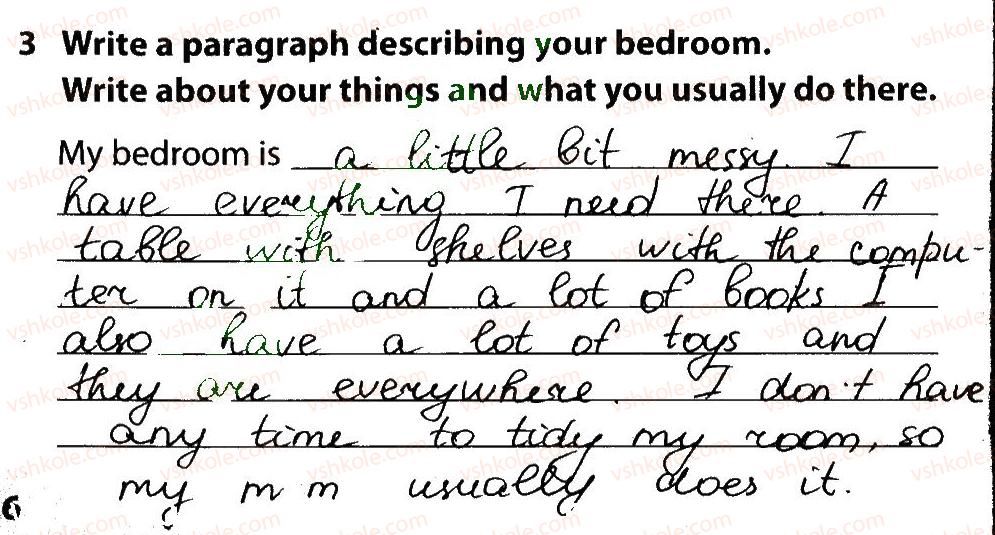 3 Write a paragraph describing your bedroom.
Write about your things and what you usually do there.
My bedroom is a little bit messy. I
have everything I need there. A
table with shelves with the compu-
ter on it and a lot of books I
also have a lot of toys and
they are everywhere. I don't have
any time to tidy my room, so
my m m usually does it.
6